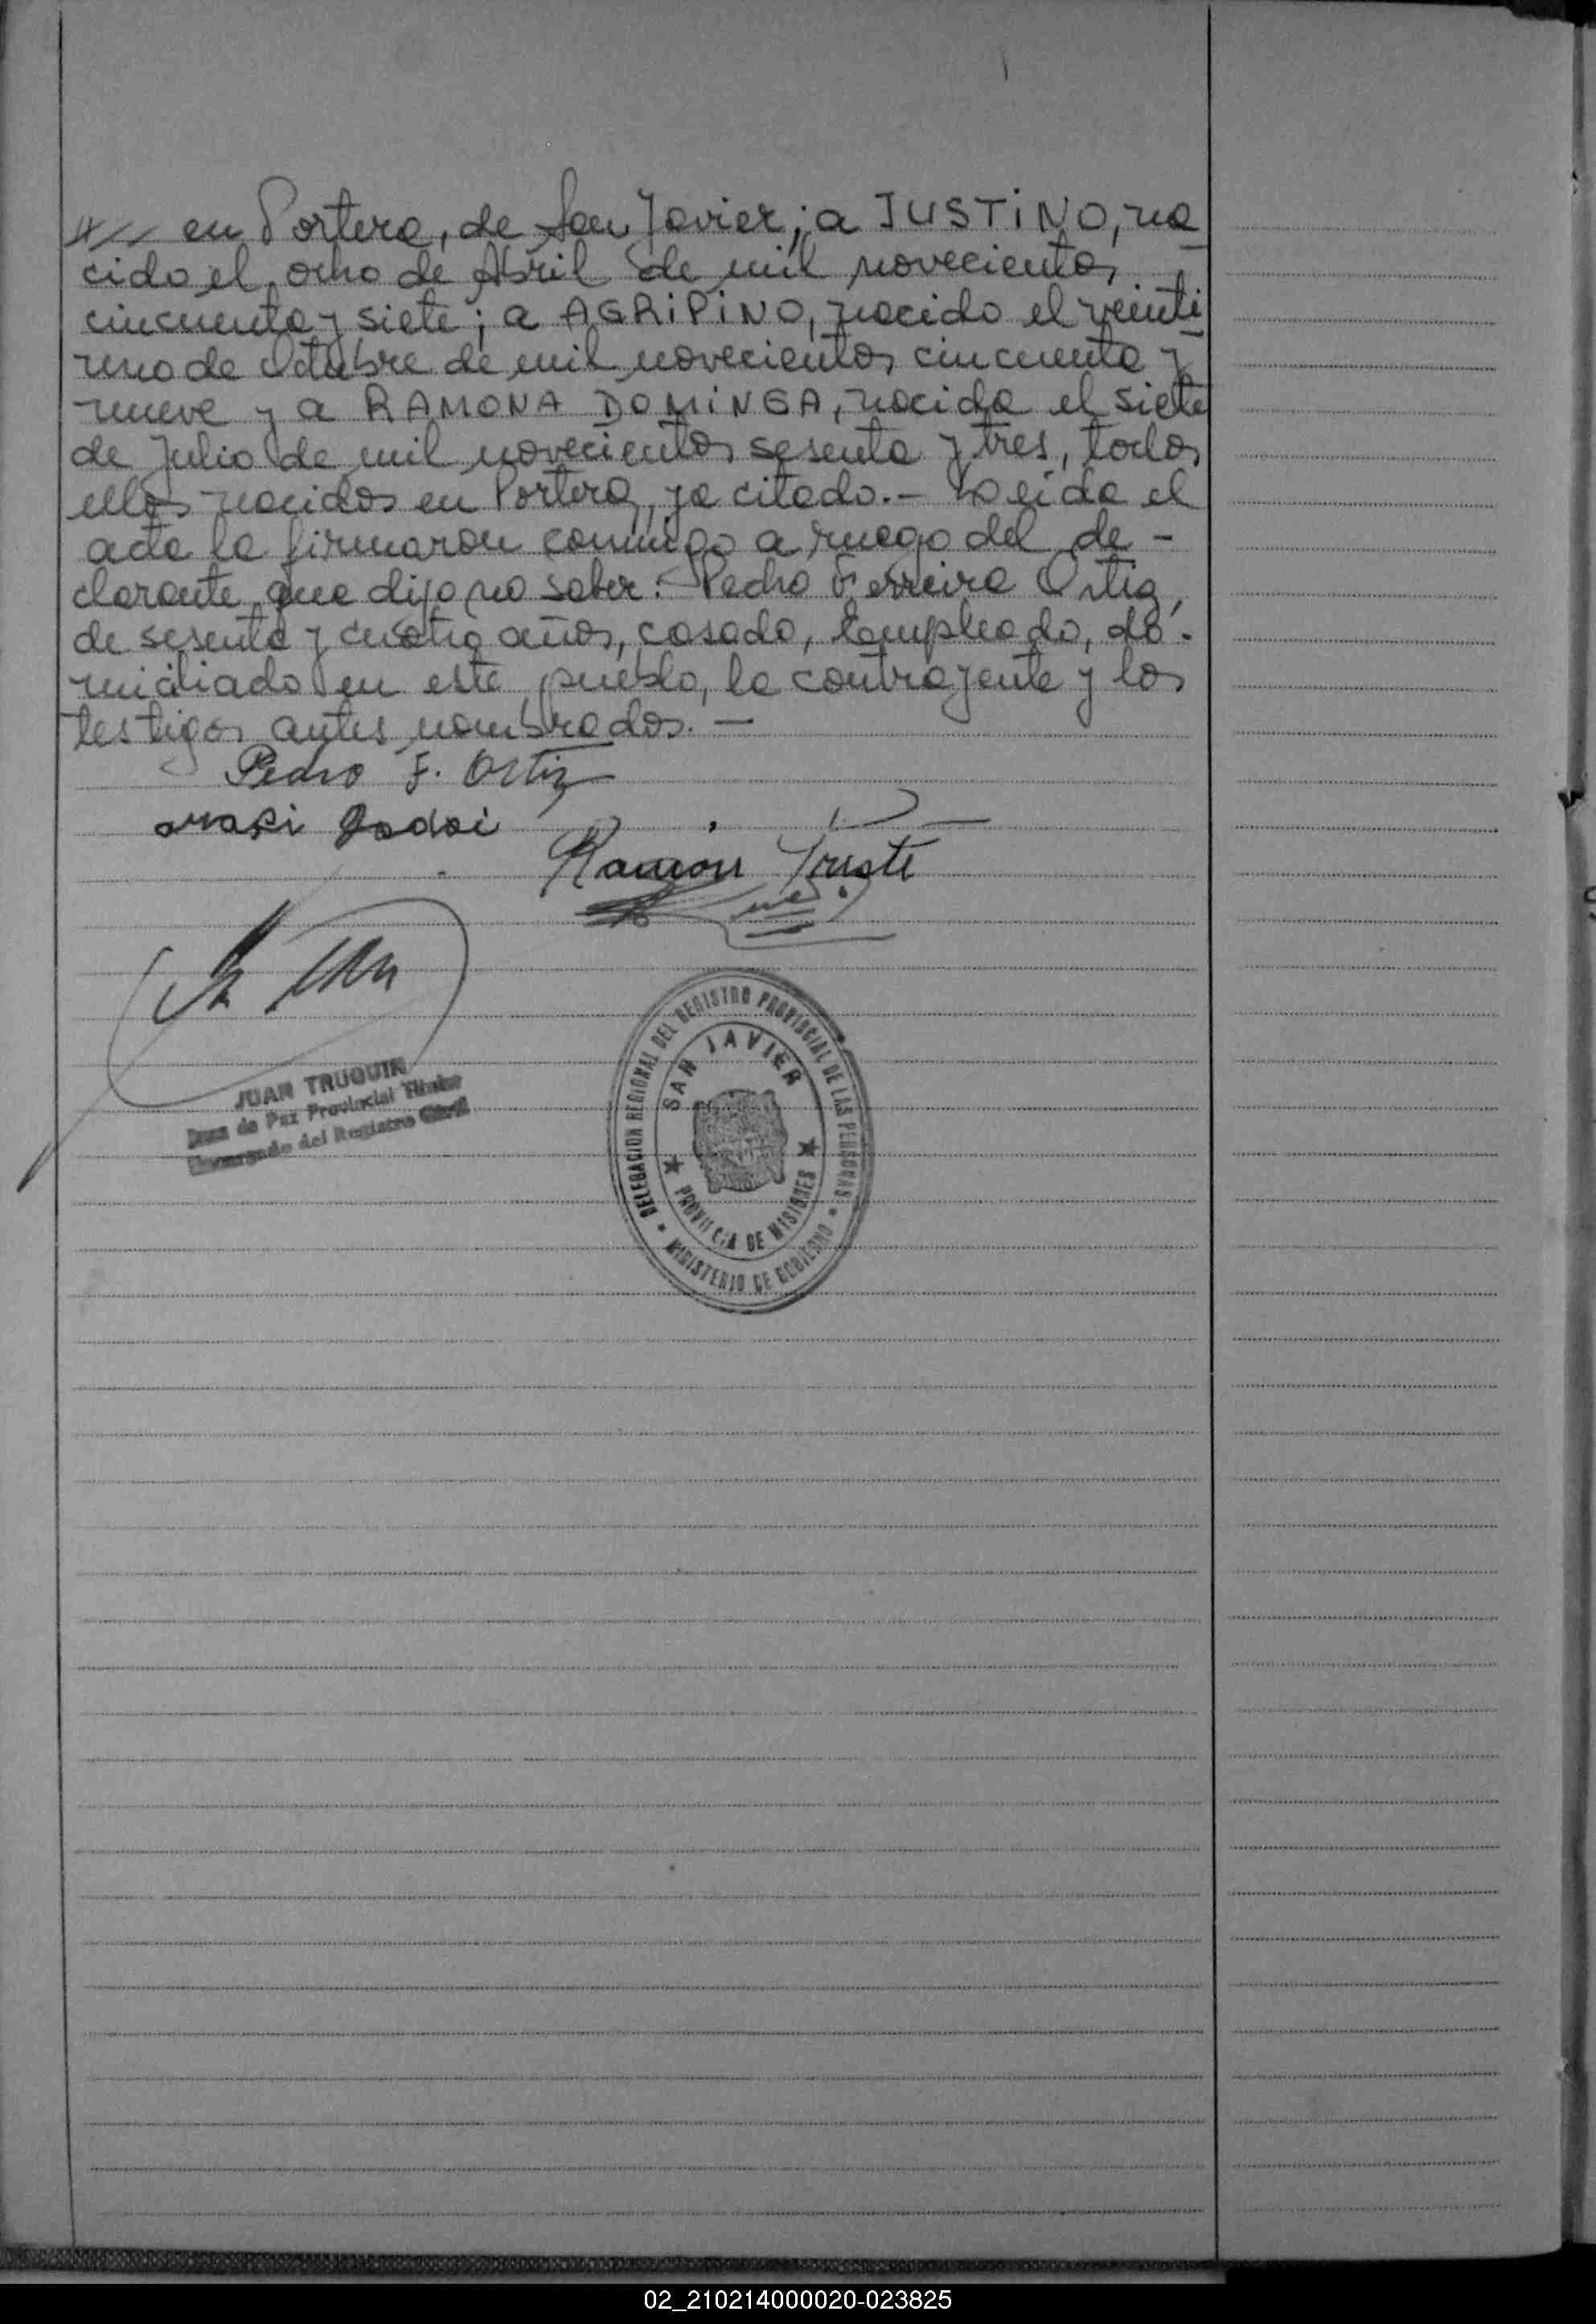 /// en Portera, de San Javier; a JUSTINO, na
cido el ocho de Abril de mil novecientos
cincuenta y siete; a AGRIPINO, nacido el veinti
uno de Octubre de mil novecientos cincuenta y
nueve y a RAMONA DOMINGA, nacida el siete
de Julio de mil novecientos sesenta y tres, todos
ellos nacidos en Portera, ya citado.- Leída el
acta la firmaron conmigo a ruego del de-
clarante que dijo no saber: Pedro Ferreira Ortiz,
de sesenta y cuatro años, casado, empleado, do-
miciliado en este pueblo, la contrayente y los
testigos antes nombrados.-
Pedro F. Ortiz
Ramón
JUAN TRUQUIN
Juez de Paz Provincial Titular
Encargado del Registro Civil
DELEGACION REGIONAL DEL REGISTRO PROVINCIAL DE LAS PERSONAS
SAN JAVIER
PROVINCIA DE MISIONES
MINISTERIO DE GOBIERNO
02_210214000020-023825